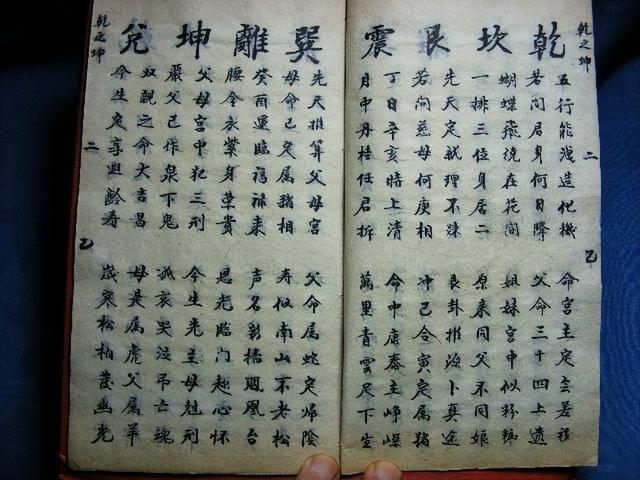 乾之坤
二
乙
乾
五行能洩造化機
命宮主定移
若問君身何日降
父命三十四上遺
坎
蝴蝶飛繞在花間
姐妹宮中似粉粧
一排三位身居二
原來同父不同娘
艮
先天定就理不疎
艮卦推演卜真途
若問慈母何庚相
沖巳合寅定属猪
震
丁日辛亥時上清
命中康泰主崢嶸
月中丹桂任君折
萬里青雲足下生
巽
先天推算父母宮
父命属蛇定歸陰
母命已定属猪相
寿似南山不老松
離
癸酉運臨福祿来
声名彰播鳳凰台
腰金衣紫身荣貴
恩光臨门趁心怀
坤
父母宮中犯三刑
今生先主母尅刑
嚴父已作泉下鬼
孤哀哭泣吊亡魂
兌
之命大吉昌
母是属虎父属羊
今生定享遐齡寿
歲寒松柏發幽光
乾之坤
二
乙